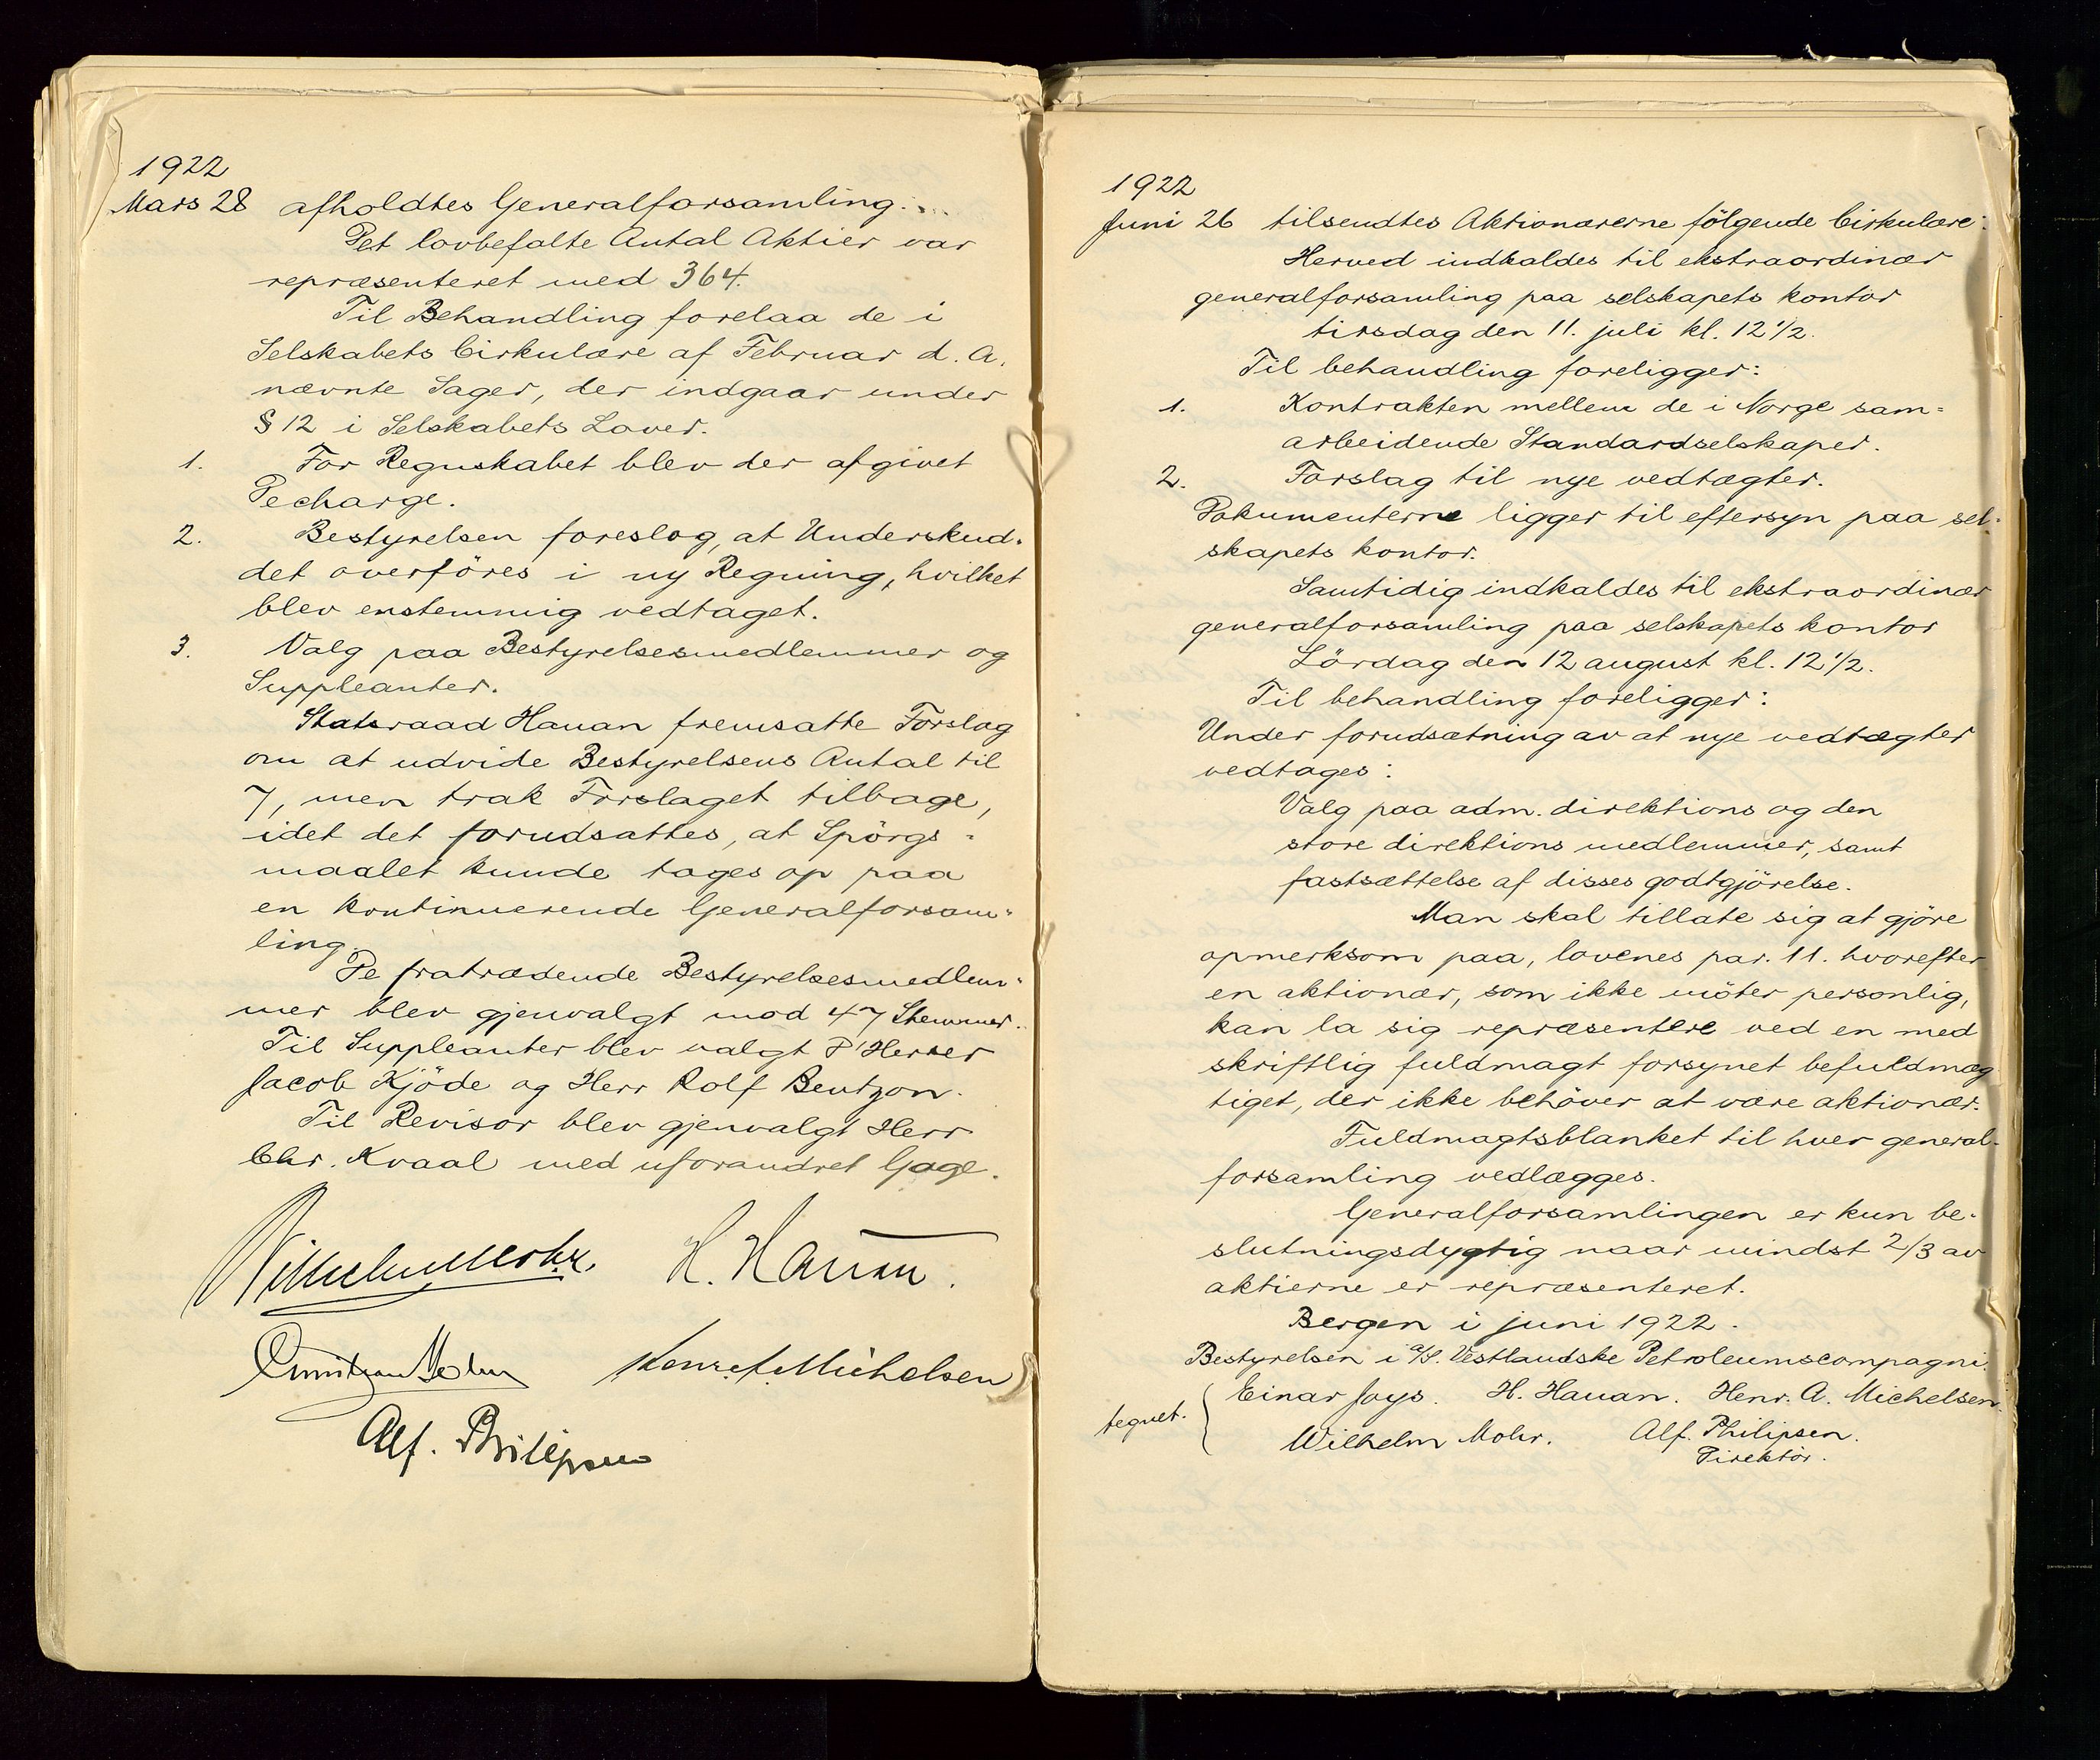 1922
Mars 28 afholdtes Generalforsamling.
Det lovbefalte Antal Aktier var
repræsenteret med 364.
Til Behandling forelaa de i
Selskabets Cirkulære af Februar d. A.
nævnte Sager, der indgaar under
§ 12 i Selskabets Lover.
1. For Regnskabet blev der afgivet
Decharge.
2. Bestyrelsen foreslog, at Underskud-
det overföres i ny Regning, hvilket
blev enstemmig vedtaget.
3. Valg paa Bestyrelsesmedlemmer og
Suppleanter.
Statsraad Hauan fremsatte Forslag
om at udvide Bestyrelsens Antal til
7, men trak Forslaget tilbage,
idet det forudsattes, at Spörgs=
maalet kunde tages op paa
en kontinuerende Generalforsam-
ling.
De fratrædende Bestyrelsesmedlem-
mer blev gjenvalgt mod 47 Stemmer.
Til Suppleanter blev valgt D'Herrer
Jacob Kjöde og Herr Rolf Bentzon.
Til Revisor blev gjenvalgt Herr
Chr. Kvaal med uforandret Gage.
Wilhelm Mohr. H. Hauan.
Michelsen
Alf. Philipsen
1922
Juni 26 tilsendtes Aktionærerne fölgende Cirkulære:
Herved indkaldes til ekstraordinær
generalforsamling paa selskapets kontor
tirsdag den 11. juli kl. 12 1/2.
Til behandling foreligger:
1. Kontrakten mellem de i Norge sam=
arbeidende Standardselskaper.
2. Forslag til nye vedtægter.
Dokumenterne ligger til eftersyn paa sel-
skapets kontor.
Samtidig indkaldes til ekstraordinær
generalforsamling paa selskapets kontor
Lördag den 12 august kl. 12 1/2.
Til behandling foreligger:
Under forudsætning av at nye vedtægter
vedtages:
Valg paa adm. direktions og den
store direktions medlemmer, samt
fastsættelse af disses godtgjörelse.
Man skal tillate sig at gjöre
opmerksom paa, lovenes par. 11. hvorefter
en aktionær, som ikke möter personlig,
kan la sig repræsentere ved en med
skriftlig fuldmagt forsynet befuldmæg
tiget, der ikke behöver at være aktionær.
Fuldmagtsblanket til hver general-
forsamling vedlægges.
Generalforsamlingen er kun be-
slutningsdygtig naar mindst 2/3 av
aktierne er repræsenteret.
Bergen i juni 1922.
Bestyrelsen i A/S. Vestlandske Petroleumscompagni.
tegnet. Einar Joys. H. Hauan. Henr. A. Michelsen.
Wilhelm Mohr. Alf. Philipsen.
Direktör.